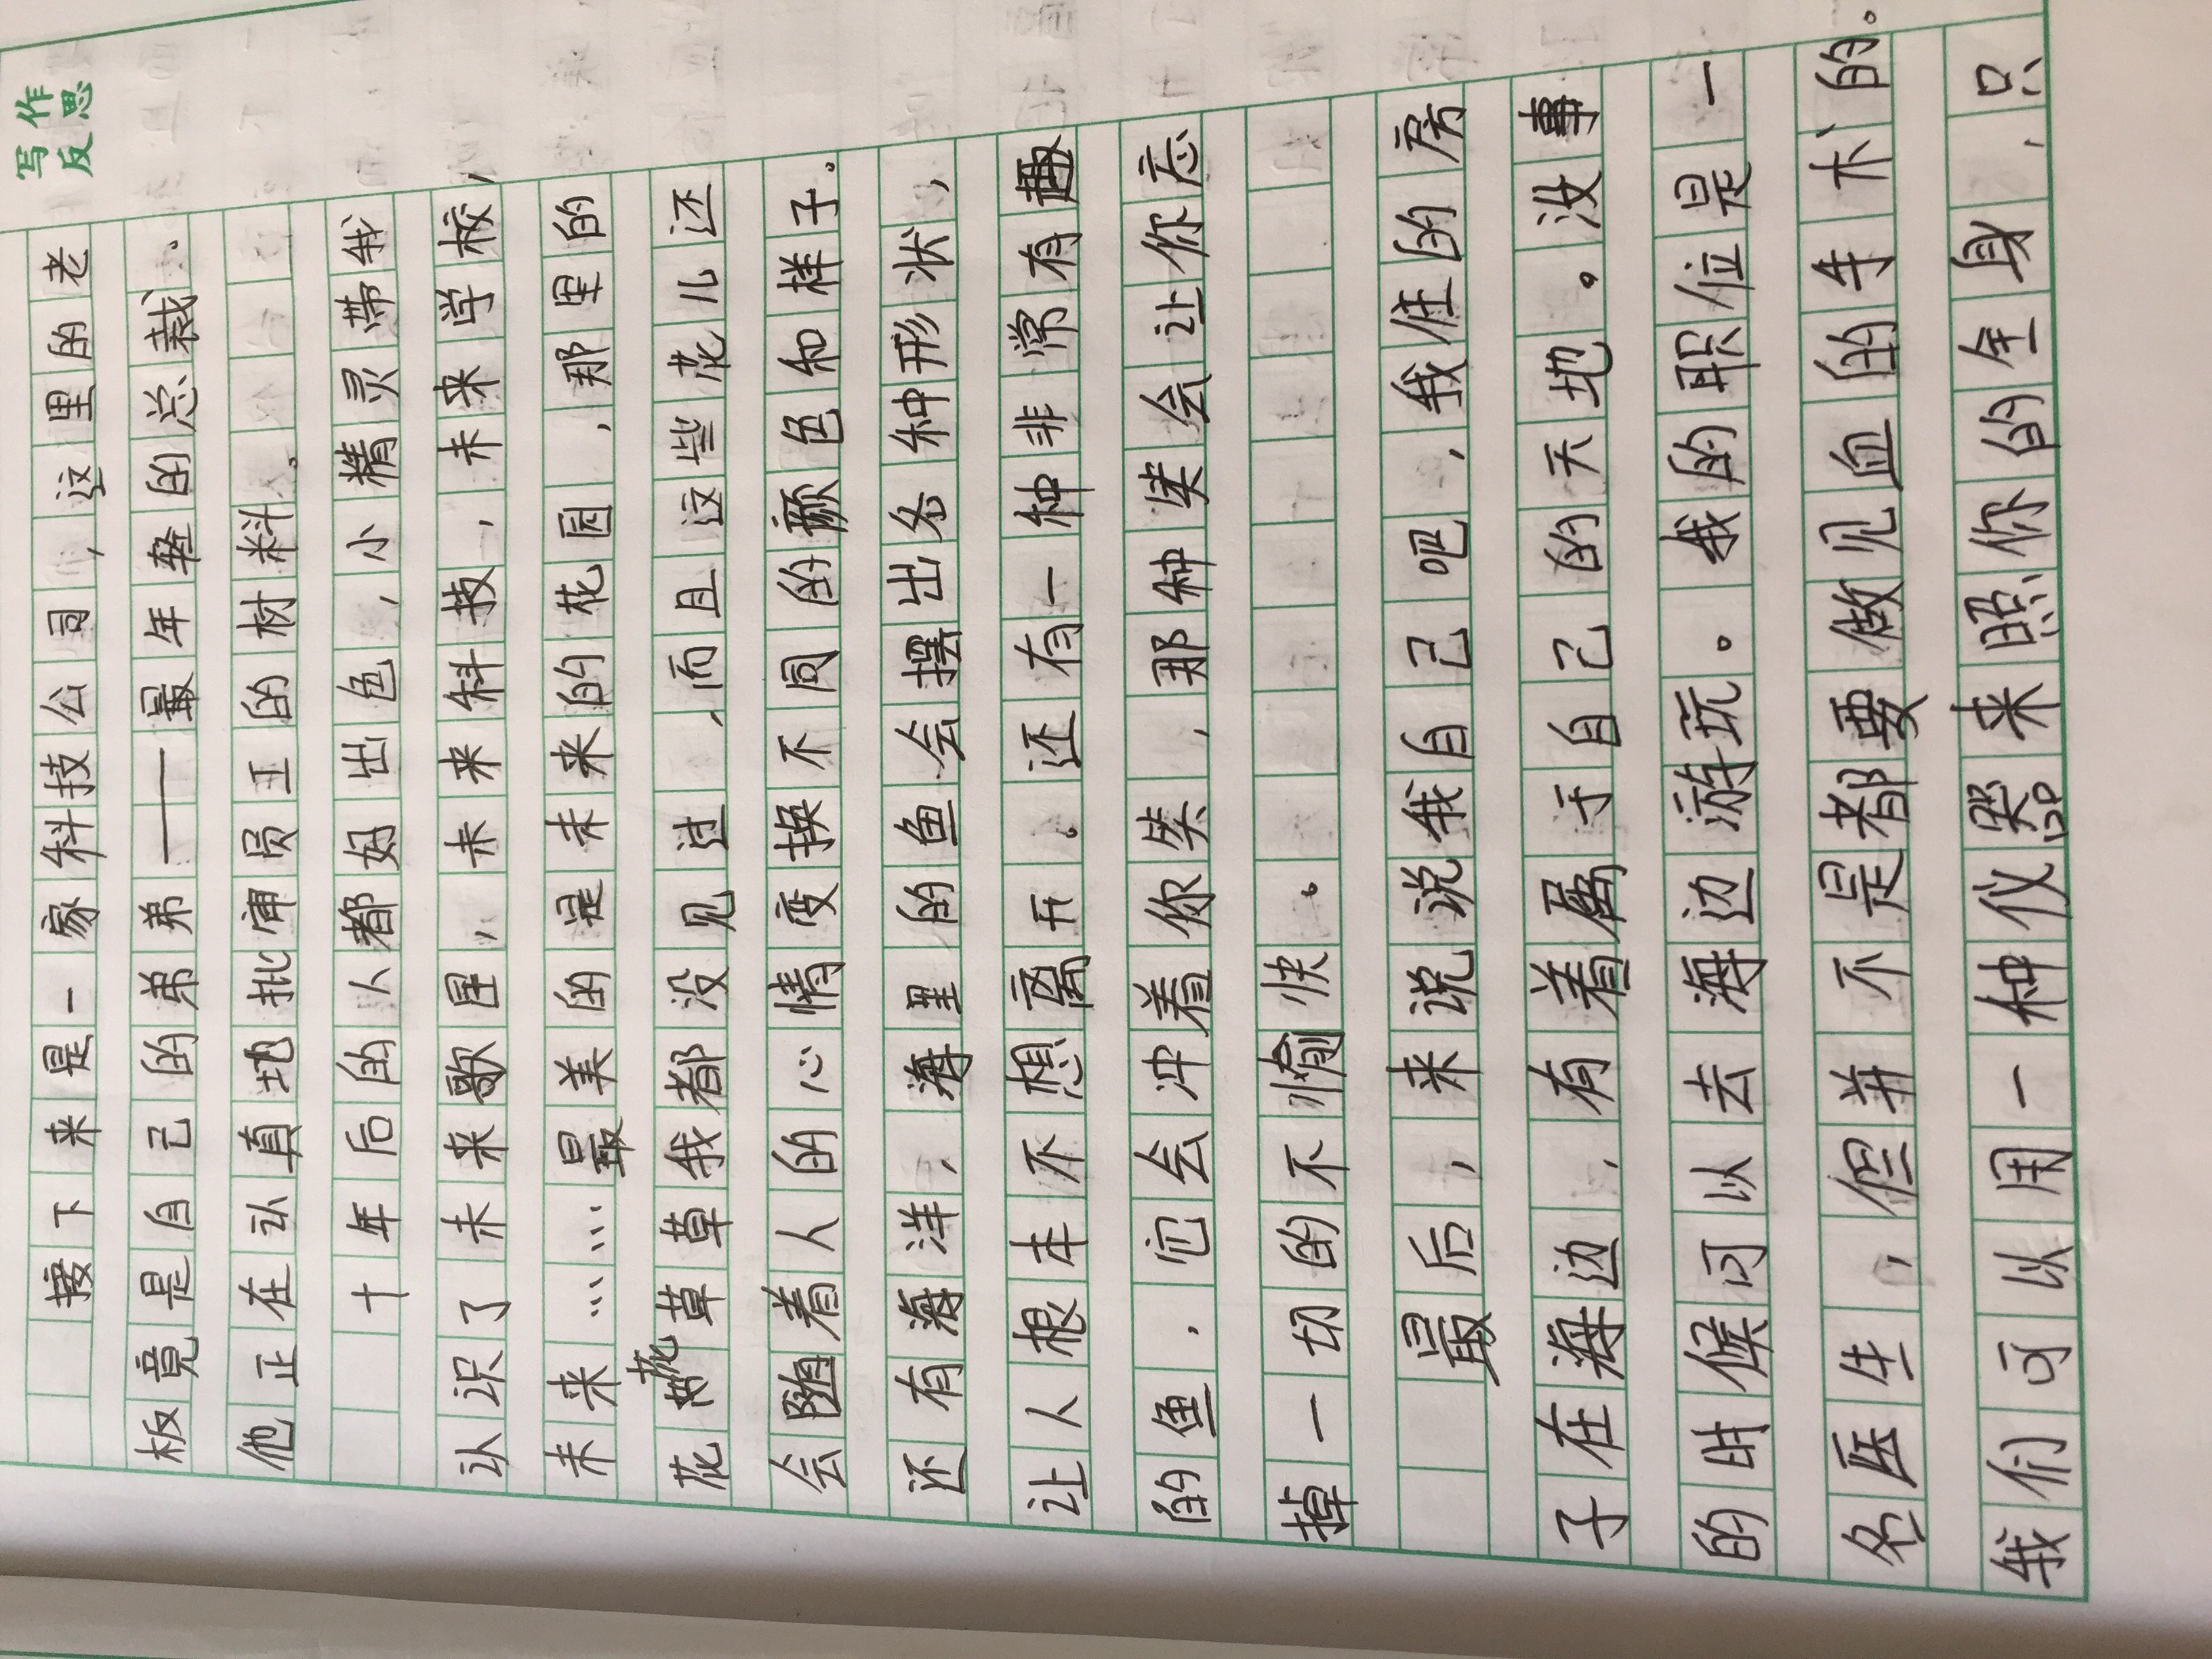 写作
反思
接下来是一家科技公司，这里的老
板竟是自己的弟弟——最年轻的总裁。
他正在认真地批审员工的材料。
十年后的人都好出色，小精灵带我
认识了未来歌星，未来科技，未来学校，
未来……最美的是未来的花园，那里的
花花草草我都没见过，而且这些花儿还
会随着人的心情变换不同的颜色和样子。
还有海洋，海里的鱼会摆出各种形状，
让人根本不想离开。还有一种非常有趣
的鱼，它会冲着你笑，那种笑会让你忘
掉一切的不愉快。
最后，来说说我自己吧，我住的房
子在海边，有着属于自己的天地。没事
的时候可以去海边游玩。我的职位是一
名医生，但并不是都要做见血的手术的。
我们可以用一种仪器来照你的全身，只